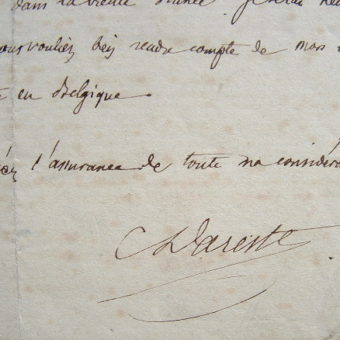 dans la
vouliez bien rendre compte de mes
en Belgique.
l'assurance de toute ma considéra
C Dareste